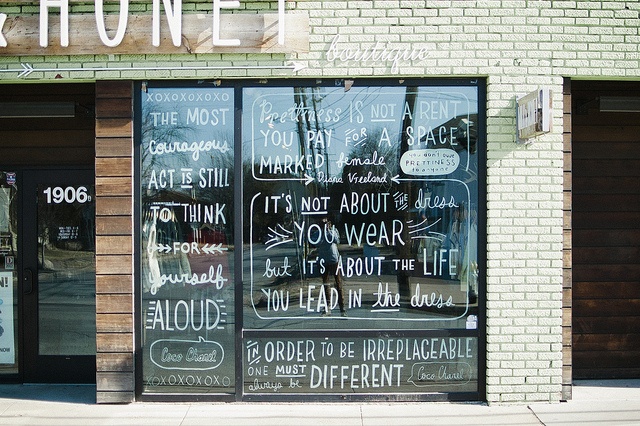 & HONEY
boutique
1906
XOXOXOXOXO
THE MOST
Courageous
ACT IS STILL
TO THINK
FOR
yourself
ALOUD
Coco Chanel
XOXOXOXO
Prettiness IS NOT A RENT
YOU PAY FOR A SPACE
MARKED female
you don't owe
PRETTINESS
to anyone
Diana Vreeland
IT'S NOT ABOUT THE dress
YOU WEAR
but IT'S ABOUT THE LIFE
YOU LEAD IN the dress
IN ORDER TO BE IRREPLACEABLE
ONE MUST
always be DIFFERENT
Coco Chanel